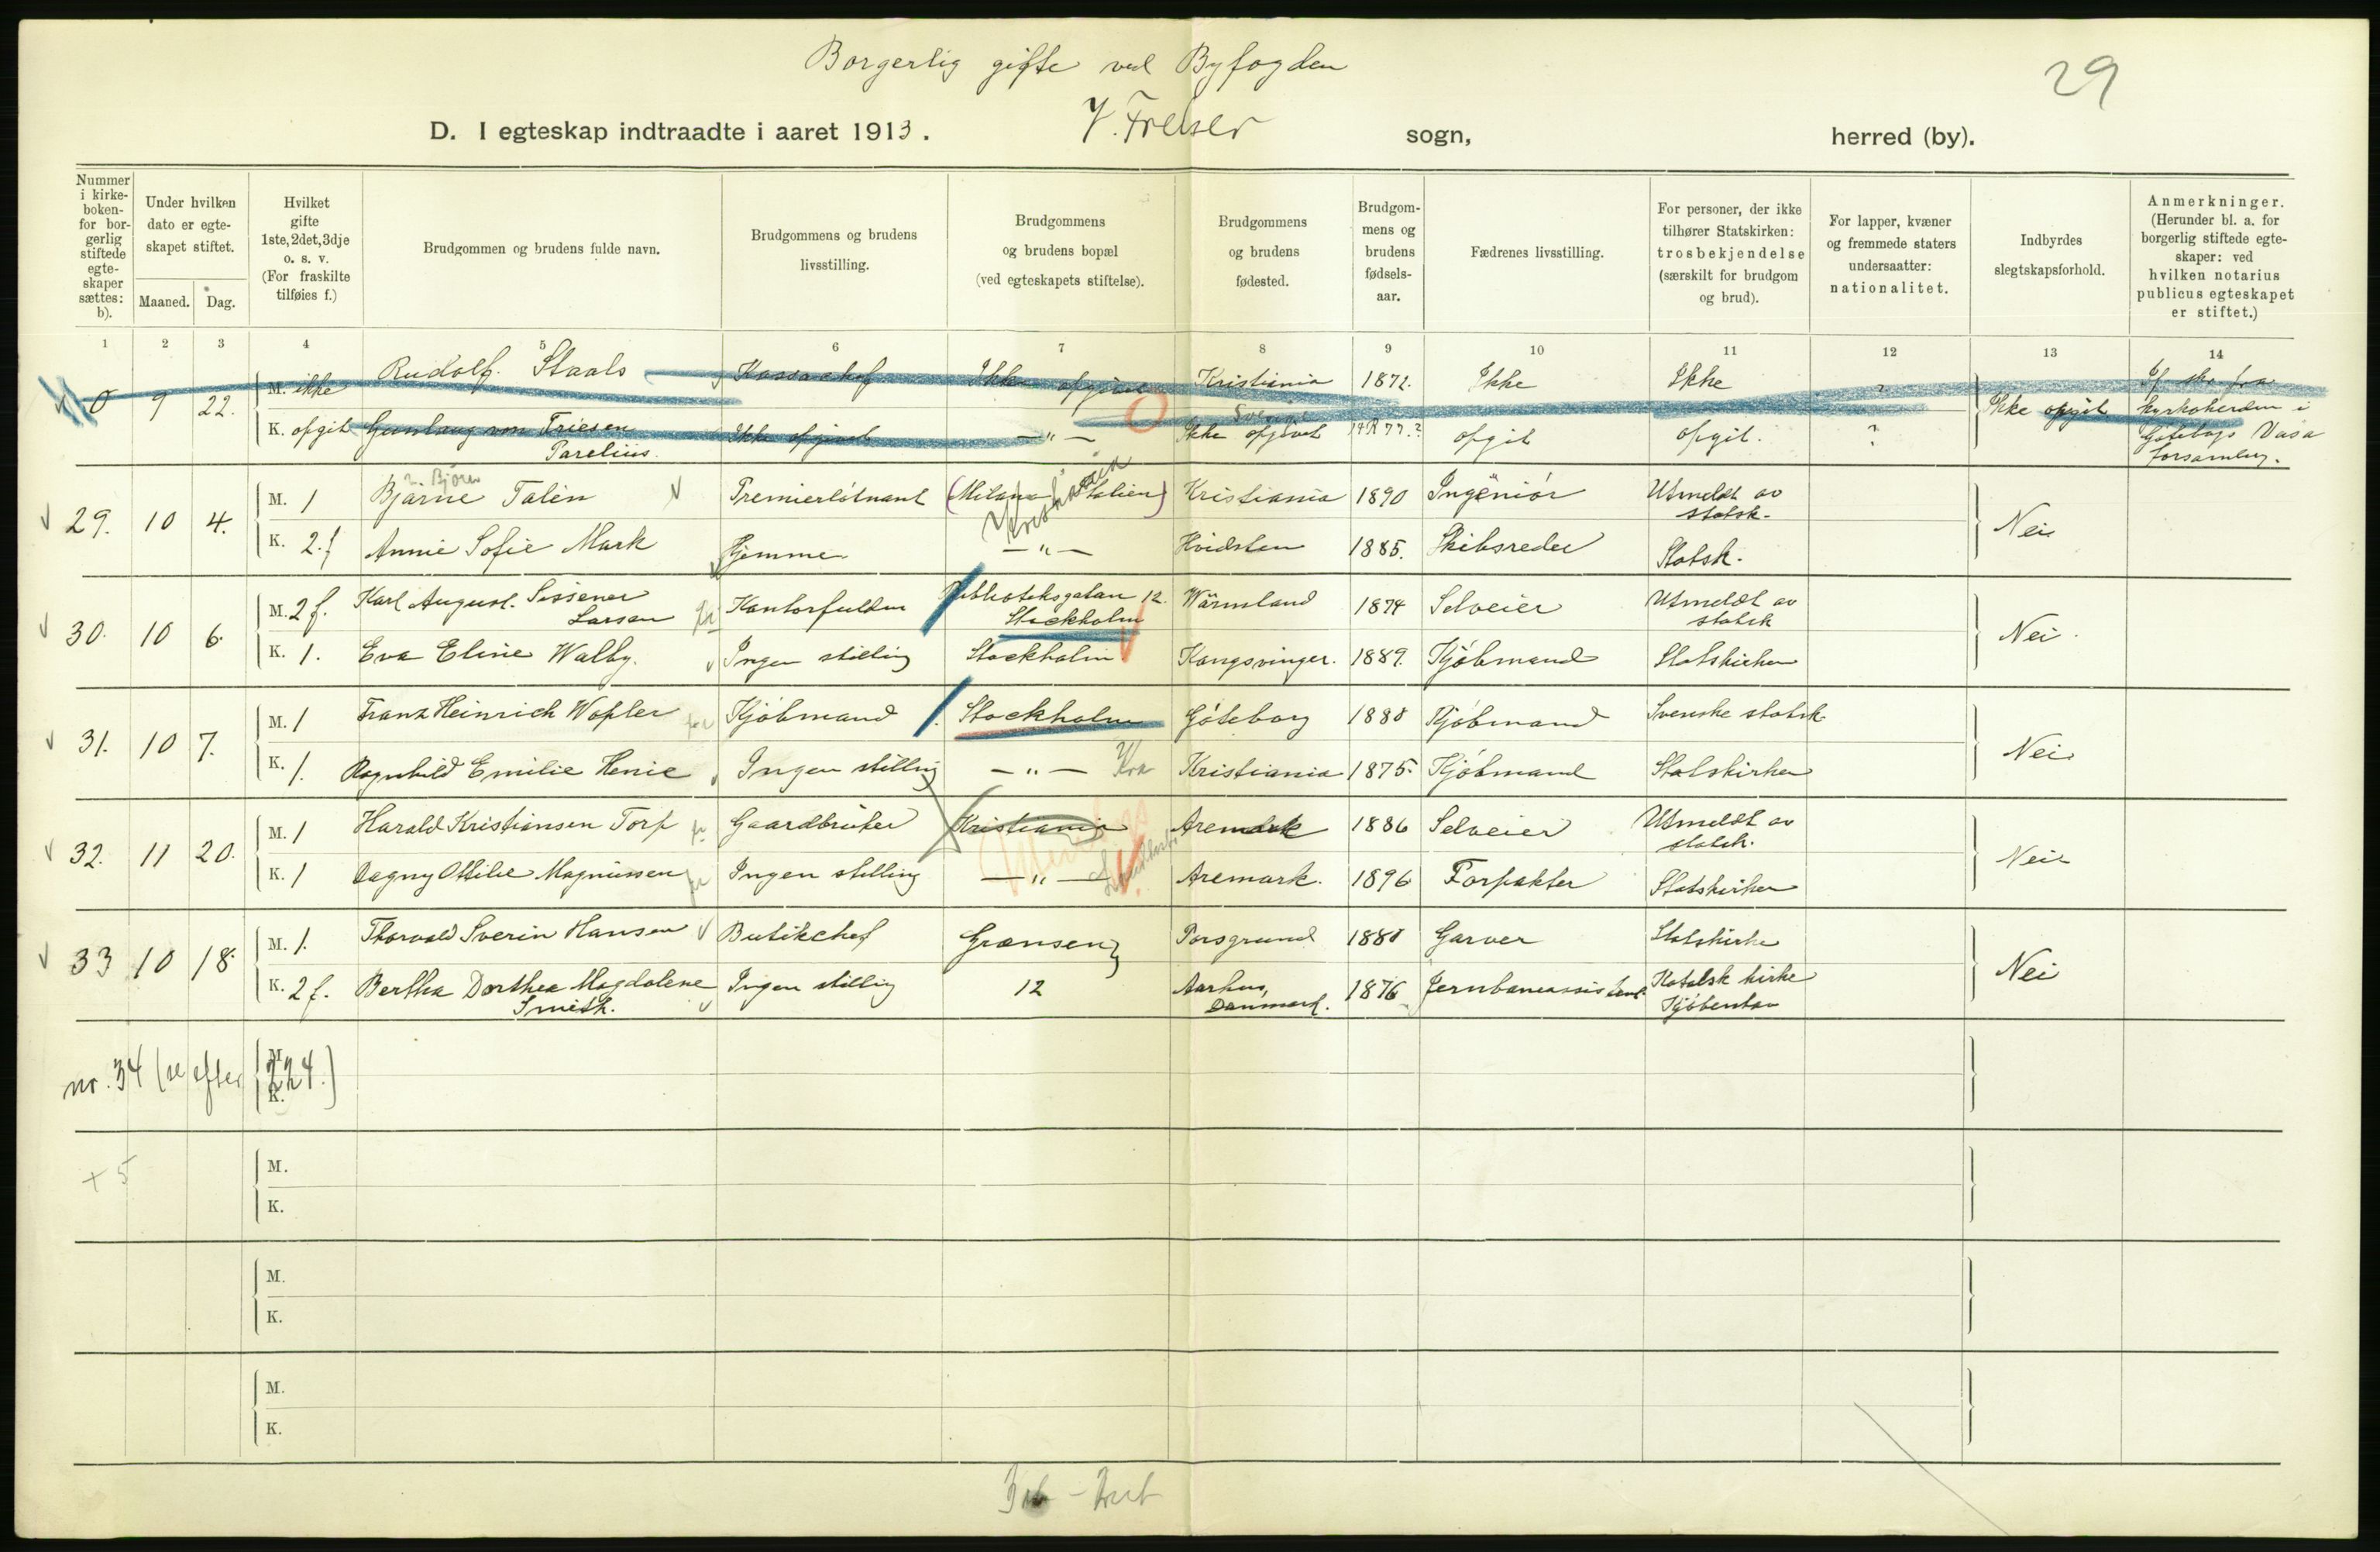 Borgerlig gifte ved Byfogden
29
D. I egteskap indtraadte i aaret 1913. V. Frelser sogn, herred (by).
Nummer i kirkeboken for borgerlig stiftede egteskaper sættes: b).
Under hvilken dato er egteskapet stiftet.
Maaned. Dag.
Hvilket gifte 1ste, 2det, 3dje o. s. v. (For fraskilte tilføies f.)
Brudgommen og brudens fulde navn.
Brudgommens og brudens livsstilling.
Brudgommens og brudens bopæl (ved egteskapets stiftelse).
Brudgommens og brudens fødested.
Brudgommens og brudens fødselsaar.
Fædrenes livsstilling.
For personer, der ikke tilhører Statskirken: trosbekjendelse (særskilt for brudgom og brud).
For lapper, kvæner og fremmede staters undersaatter: nationalitet.
Indbyrdes slegtskapsforhold.
Anmerkninger. (Herunder bl. a. for borgerlig stiftede egteskaper: ved hvilken notarius publicus egteskapet er stiftet.)
1 2 3 4 5 6 7 8 9 10 11 12 13 14
0 9 22. M. ikke Rudolf Staals Kassachef Ikke opgivet Kristiania 1872. Ikke Ikke ? Ikke opgit
K. opgit Gunlaug von Friesen Parelius Ikke opgivet —"— Ikke opgivet Sverige 77.? opgit opgit. ?
kyrkoherden i Göteborgs Vasa forsamling.
29. 10 4. M. 1 Bjarne Talén Premierløitnant (Milano Italien) Kristiania Kristiania 1890 Ingeniör Utmeldt av statsk. Nei
K. 2.f Annie Sofie Mark Hjemme —"— Hvidsten 1885. Skibsreder Statsk.
30. 10 6. M. 2 f. Karl August Sissener Larsen Kontorfuldm Biblioteksgatan 12. Stockholm Wärmland 1874 Selveier Utmeldt av statsk Nei.
K. 1. Eva Eline Walby. Ingen stilling Stockholm Kongsvinger. 1889. Kjøbmand Statskirken
31. 10 7. M. 1 Franz Heinrich Wopler Kjøbmand Stockholm Göteborg 1880 Kjøbmand Svenske statsk. Nei
K. 1. Ragnhild Emilie Henie Ingen stilling —"— Kra Kristiania 1875. Kjøbmand Statskirken
32. 11 20. M. 1 Harald Kristiansen Torp Gaardbruker Kristiania Aremark 1886 Selveier Utmeldt av statsk. Nei
K. 1 Dagny Ottilie Magnussen Ingen stilling —"— Aremark. 1896 Forpakter Statskirken
33 10 18. M. 1. Thorvald Sverin Hansen Butikchef Grænsen Porsgrund 1880 Garver Statskirke Nei
K. 2 f. Bertha Dorthea Magdalene Smith. Ingen stilling 12 Aarhus, Danmark. 1876 Jernbaneassistent Katolsk kirke Kjøbenhav
nr. 34 (se efter 224.) M.
K.
+ 5 M.
K.
M.
K.
M.
K.